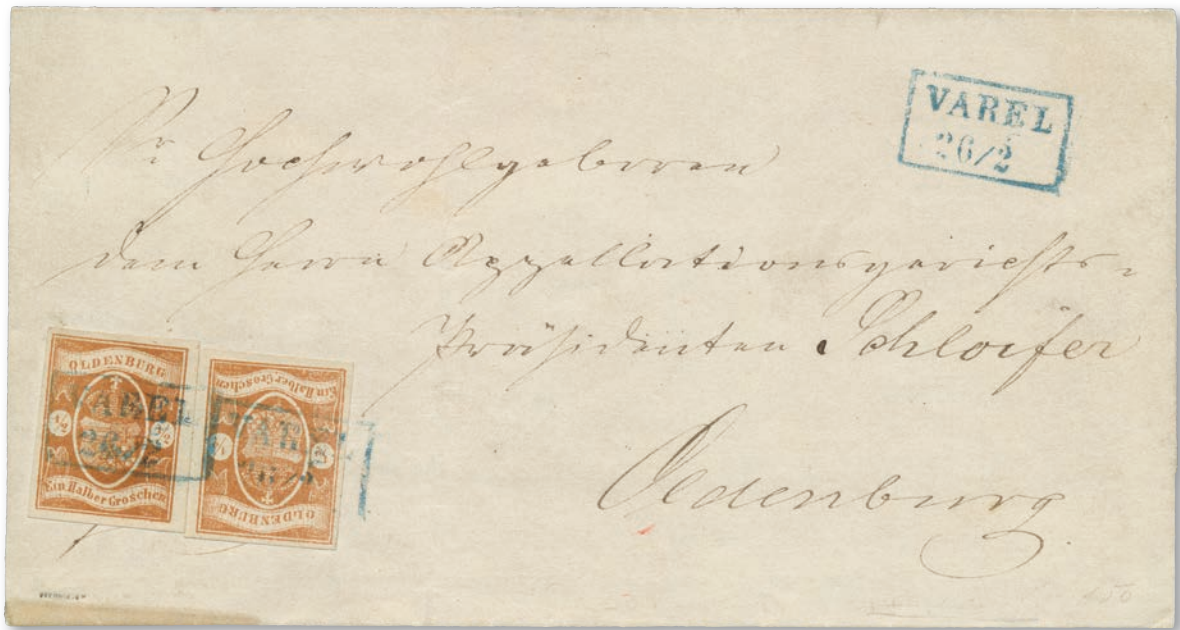 VAREL
26/2
Sr Hochwohlgeboren
dem Herrn Appellationsgerichts-
Präsidenten Schloifer
Oldenburg
OLDENBURG
1/2 1/2
Ein Halber Groschen
VAREL
26/2
Ein Halber Groschen
1/2 1/2
OLDENBURG
VAREL
26/2